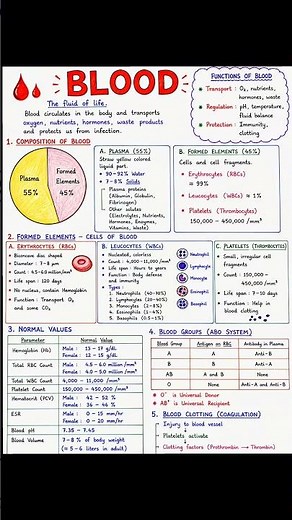 BLOOD
The fluid of life.
Blood circulates in the body and transports
oxygen, nutrients, hormones, waste products
and protects us from infection.
FUNCTIONS OF BLOOD
Transport : O₂, nutrients,
hormones, waste
Regulation : pH, temperature,
fluid balance
Protection : Immunity,
clotting
1. COMPOSITION OF BLOOD
Plasma
55%
Formed
Elements
45%
A. PLASMA (55%)
Straw yellow colored
liquid part.
90-92% Water
7-8% Solids
Plasma proteins
(Albumin, Globulin,
Fibrinogen)
Other solutes
(Electrolytes, Nutrients,
Hormones, Enzymes,
Vitamins, Waste)
B. FORMED ELEMENTS (45%)
Cells and cell fragments.
Erythrocytes (RBCs)
≈ 99%
Leucocytes (WBCs) ≈ 1%
Platelets (Thrombocytes)
150,000 - 450,000 /mm³
2. FORMED ELEMENTS - CELLS OF BLOOD
A. ERYTHROCYTES (RBCs)
Biconcave disc shaped
Diameter : 7-8 μm
Count : 4.5-6.0 million/mm³
Life span : 120 days
No nucleus, contain Hemoglobin
Function : Transport O₂
and some CO₂
B. LEUCOCYTES (WBCs)
Nucleated, colorless
Count : 4,000-11,000/mm³
Life span : Hours to years
Function : Body defense
and immunity
Types :
1. Neutrophils (40-70%)
2. Lymphocytes (20-40%)
3. Monocytes (2-8%)
4. Eosinophils (1-4%)
5. Basophils (0.5-1%)
Neutrophil
Lymphocyte
Monocyte
Eosinophil
Basophil
C. PLATELETS (THROMBOCYTES)
Small, irregular cell
fragments
Count : 150,000 -
450,000 /mm³
Life span : 7-10 days
Function : Help in
blood clotting
3. NORMAL VALUES
Parameter Normal Value
Hemoglobin (Hb) Male : 13 - 17 g/dL
Female : 12 - 15 g/dL
Total RBC Count Male : 4.5 - 6.0 million/mm³
Female : 4.0 - 5.0 million/mm³
Total WBC Count 4,000 - 11,000 /mm³
Platelet Count 150,000 - 450,000 /mm³
Hematocrit (PCV) Male : 42 - 52 %
Female : 36 - 46 %
ESR Male : 0 - 15 mm/hr
Female : 0 - 20 mm/hr
Blood pH 7.35 - 7.45
Blood Volume 7-8 % of body weight
(≈ 5-6 liters in adult)
4. BLOOD GROUPS (ABO SYSTEM)
Blood Group Antigen on RBC Antibody in Plasma
A A Anti-B
B B Anti-A
AB A and B None
O None Anti-A and Anti-B
O⁻ is Universal Donor
AB⁺ is Universal Recipient
5. BLOOD CLOTTING (COAGULATION)
Injury to blood vessel
Platelets activate
Clotting factors (Prothrombin → Thrombin)